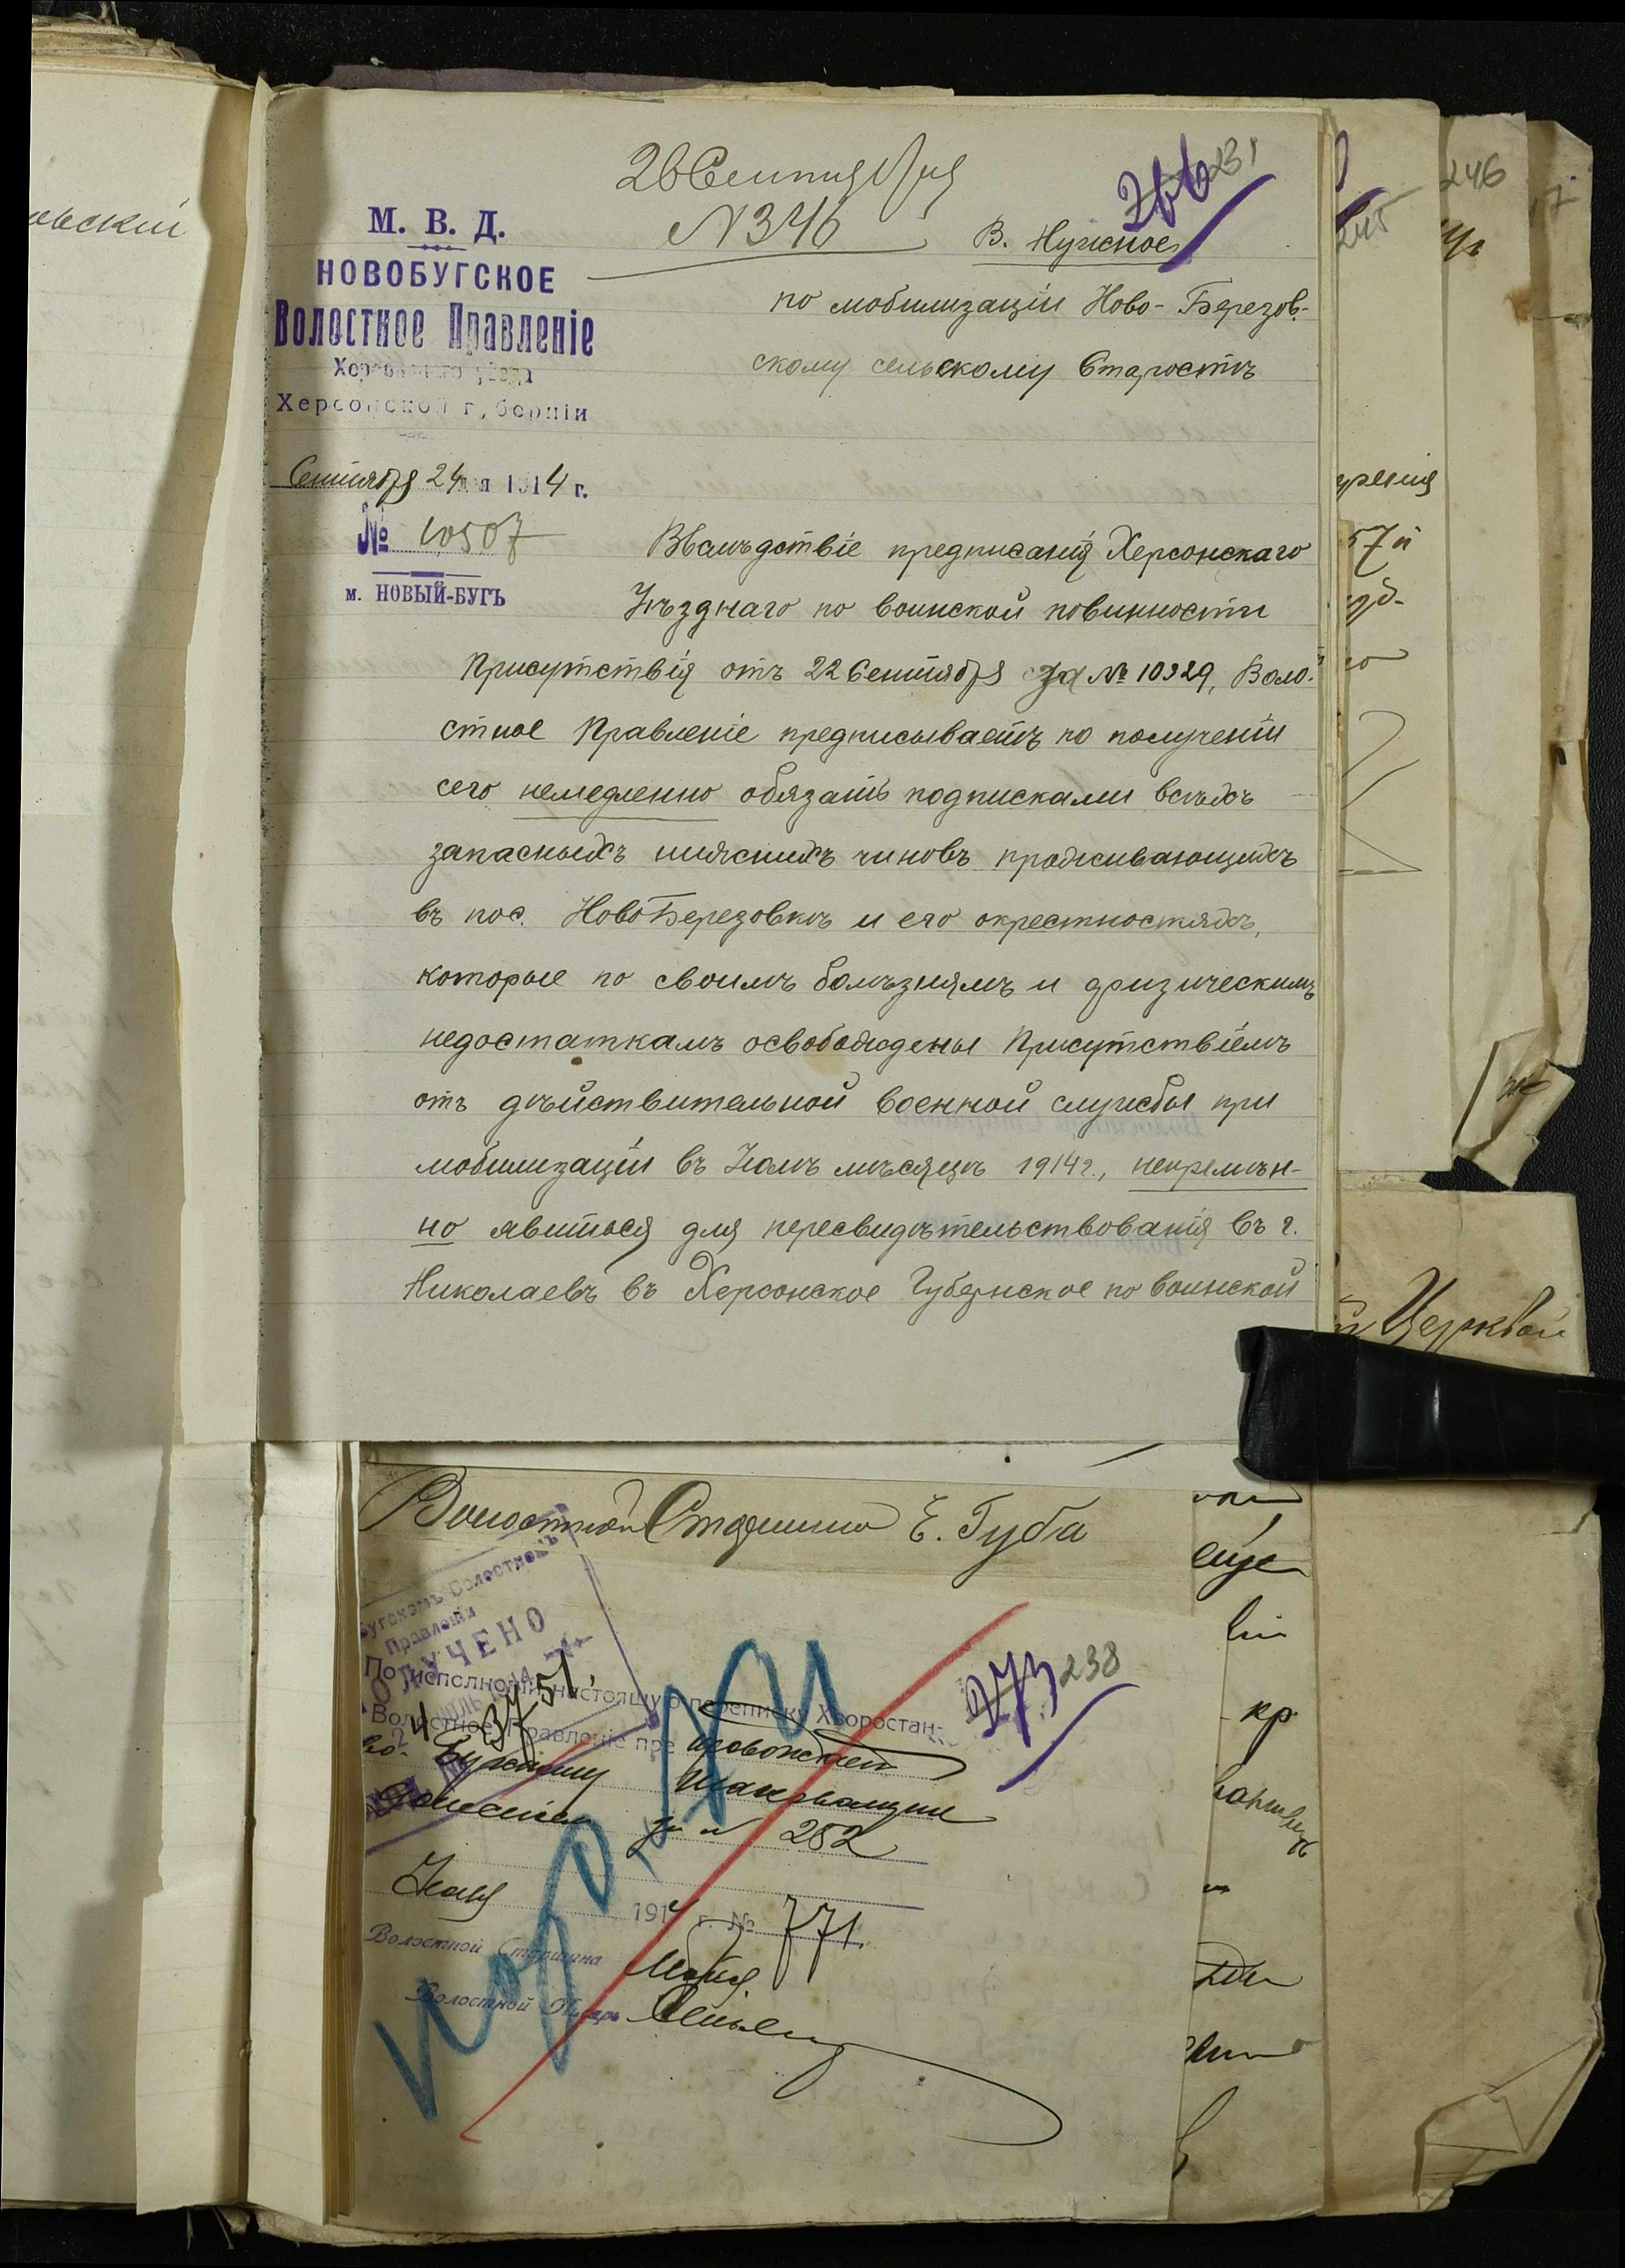 льскій
26 Сентября
№346
266
231
М. В. Д.
НОВОБУГСКОЕ
Волостное Правленіе
Херсонскаго уѣзда
Херсонской губерніи
Сентября 24 дня 1914 г.
№ 10507
м. НОВЫЙ-БУГЪ
В. Нужное
по мобилизаціи Ново-Березов-
скому сельскому Старостѣ
Вслѣдствіе предписанія Херсонскаго
Уѣзднаго по воинской повинности
Присутствія отъ 22 Сентября за № 10329, Воло-
стное Правленіе предписываетъ по полученіи
сего немедленно обязать подписками всѣхъ
запасныхъ нижнихъ чиновъ проживающихъ
въ пос. НовоБерезовкѣ и его окрестностяхъ,
которые по своимъ болѣзнямъ и физическимъ
недостаткамъ освобождены Присутствіемъ
отъ дѣйствительной военной службы при
мобилизаціи въ Іюлѣ мѣсяцѣ 1914 г., непремѣн-
но явиться для пересвидѣтельствованія въ г.
Николаевъ въ Херсонское Губернское по воинской
245
246
7
57й
Церквой
Волостной Старшина Е. Губа
бугскомъ Волостномъ
Правленіи
ПОЛУЧЕНО
3751
По исполненіи настоящую переписку Хворостан-
Волостное Правленіе пре провождает
273
238
за № 252
1914 г. № 771.
Волостной Старшина
Волостной Писарь
кр